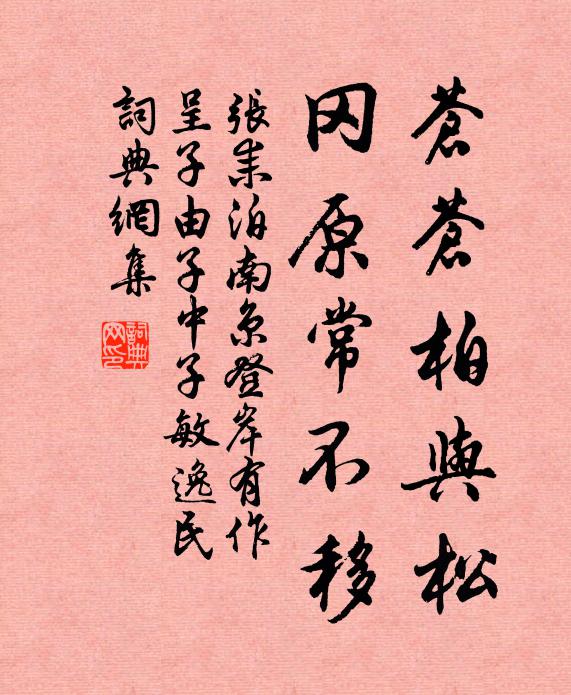 蒼蒼柏與松
冈原常不移
張耒泊南京登岸有作
呈子由子中子敏逸民
詞典網集
詞典網印